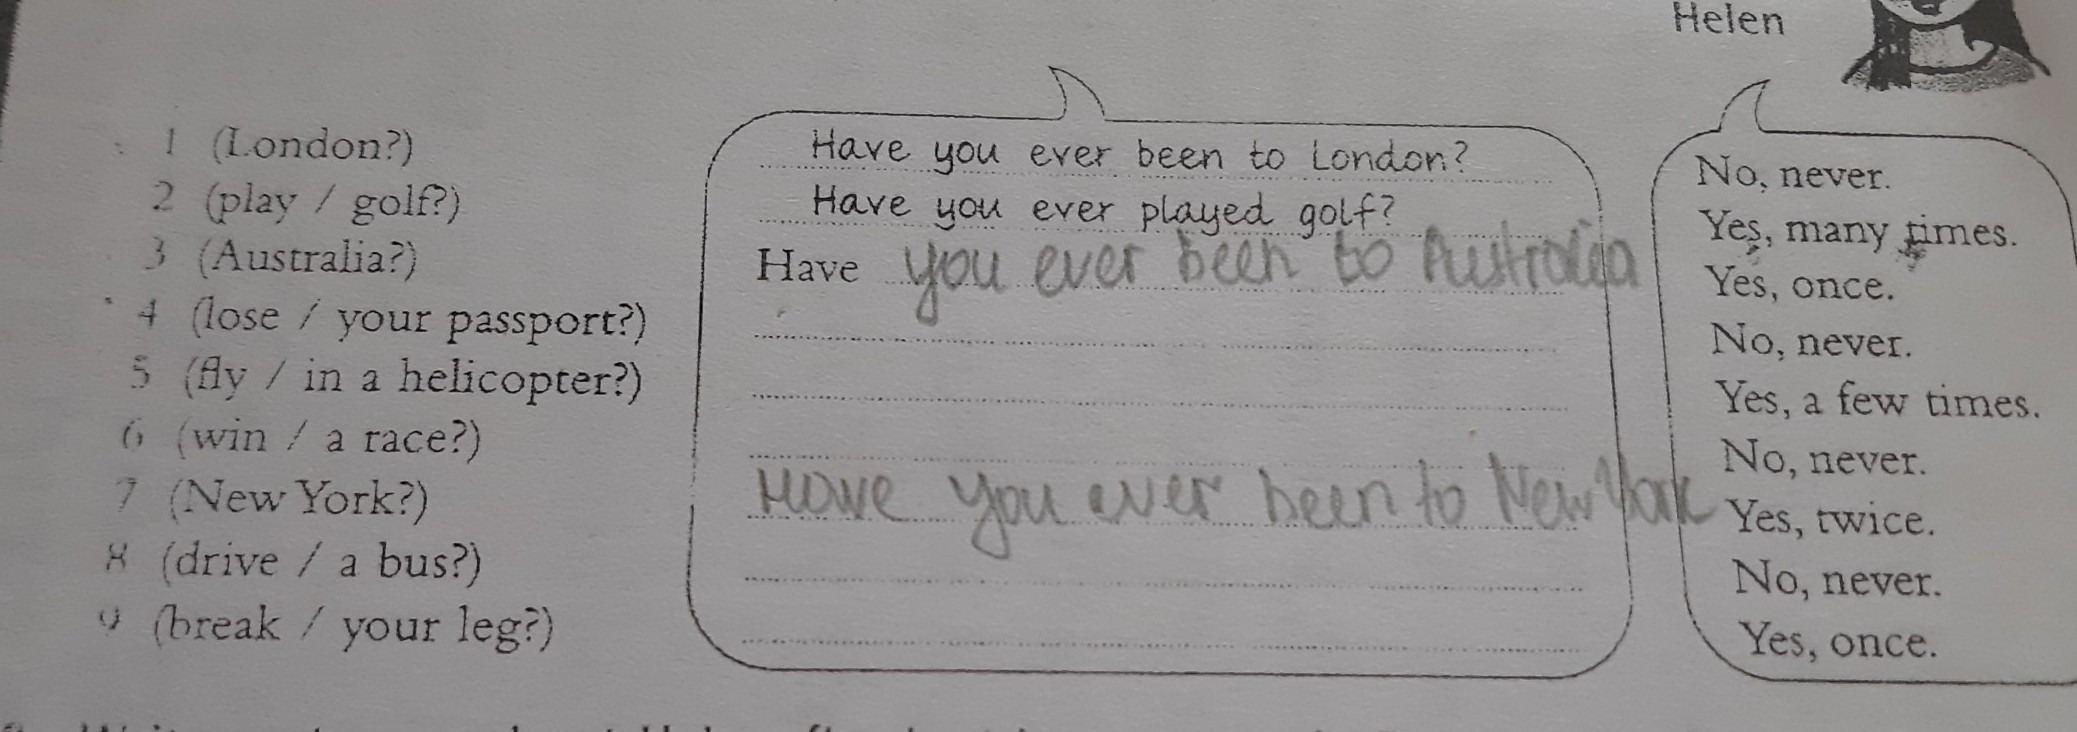 Helen
1 (London?) Have you ever been to London? No, never.
2 (play / golf?) Have you ever played golf? Yes, many times.
3 (Australia?) Have you ever been to Australia Yes, once.
4 (lose / your passport?) No, never.
5 (fly / in a helicopter?) Yes, a few times.
6 (win / a race?) No, never.
7 (New York?) Have you ever been to New York Yes, twice.
8 (drive / a bus?) No, never.
9 (break / your leg?) Yes, once.